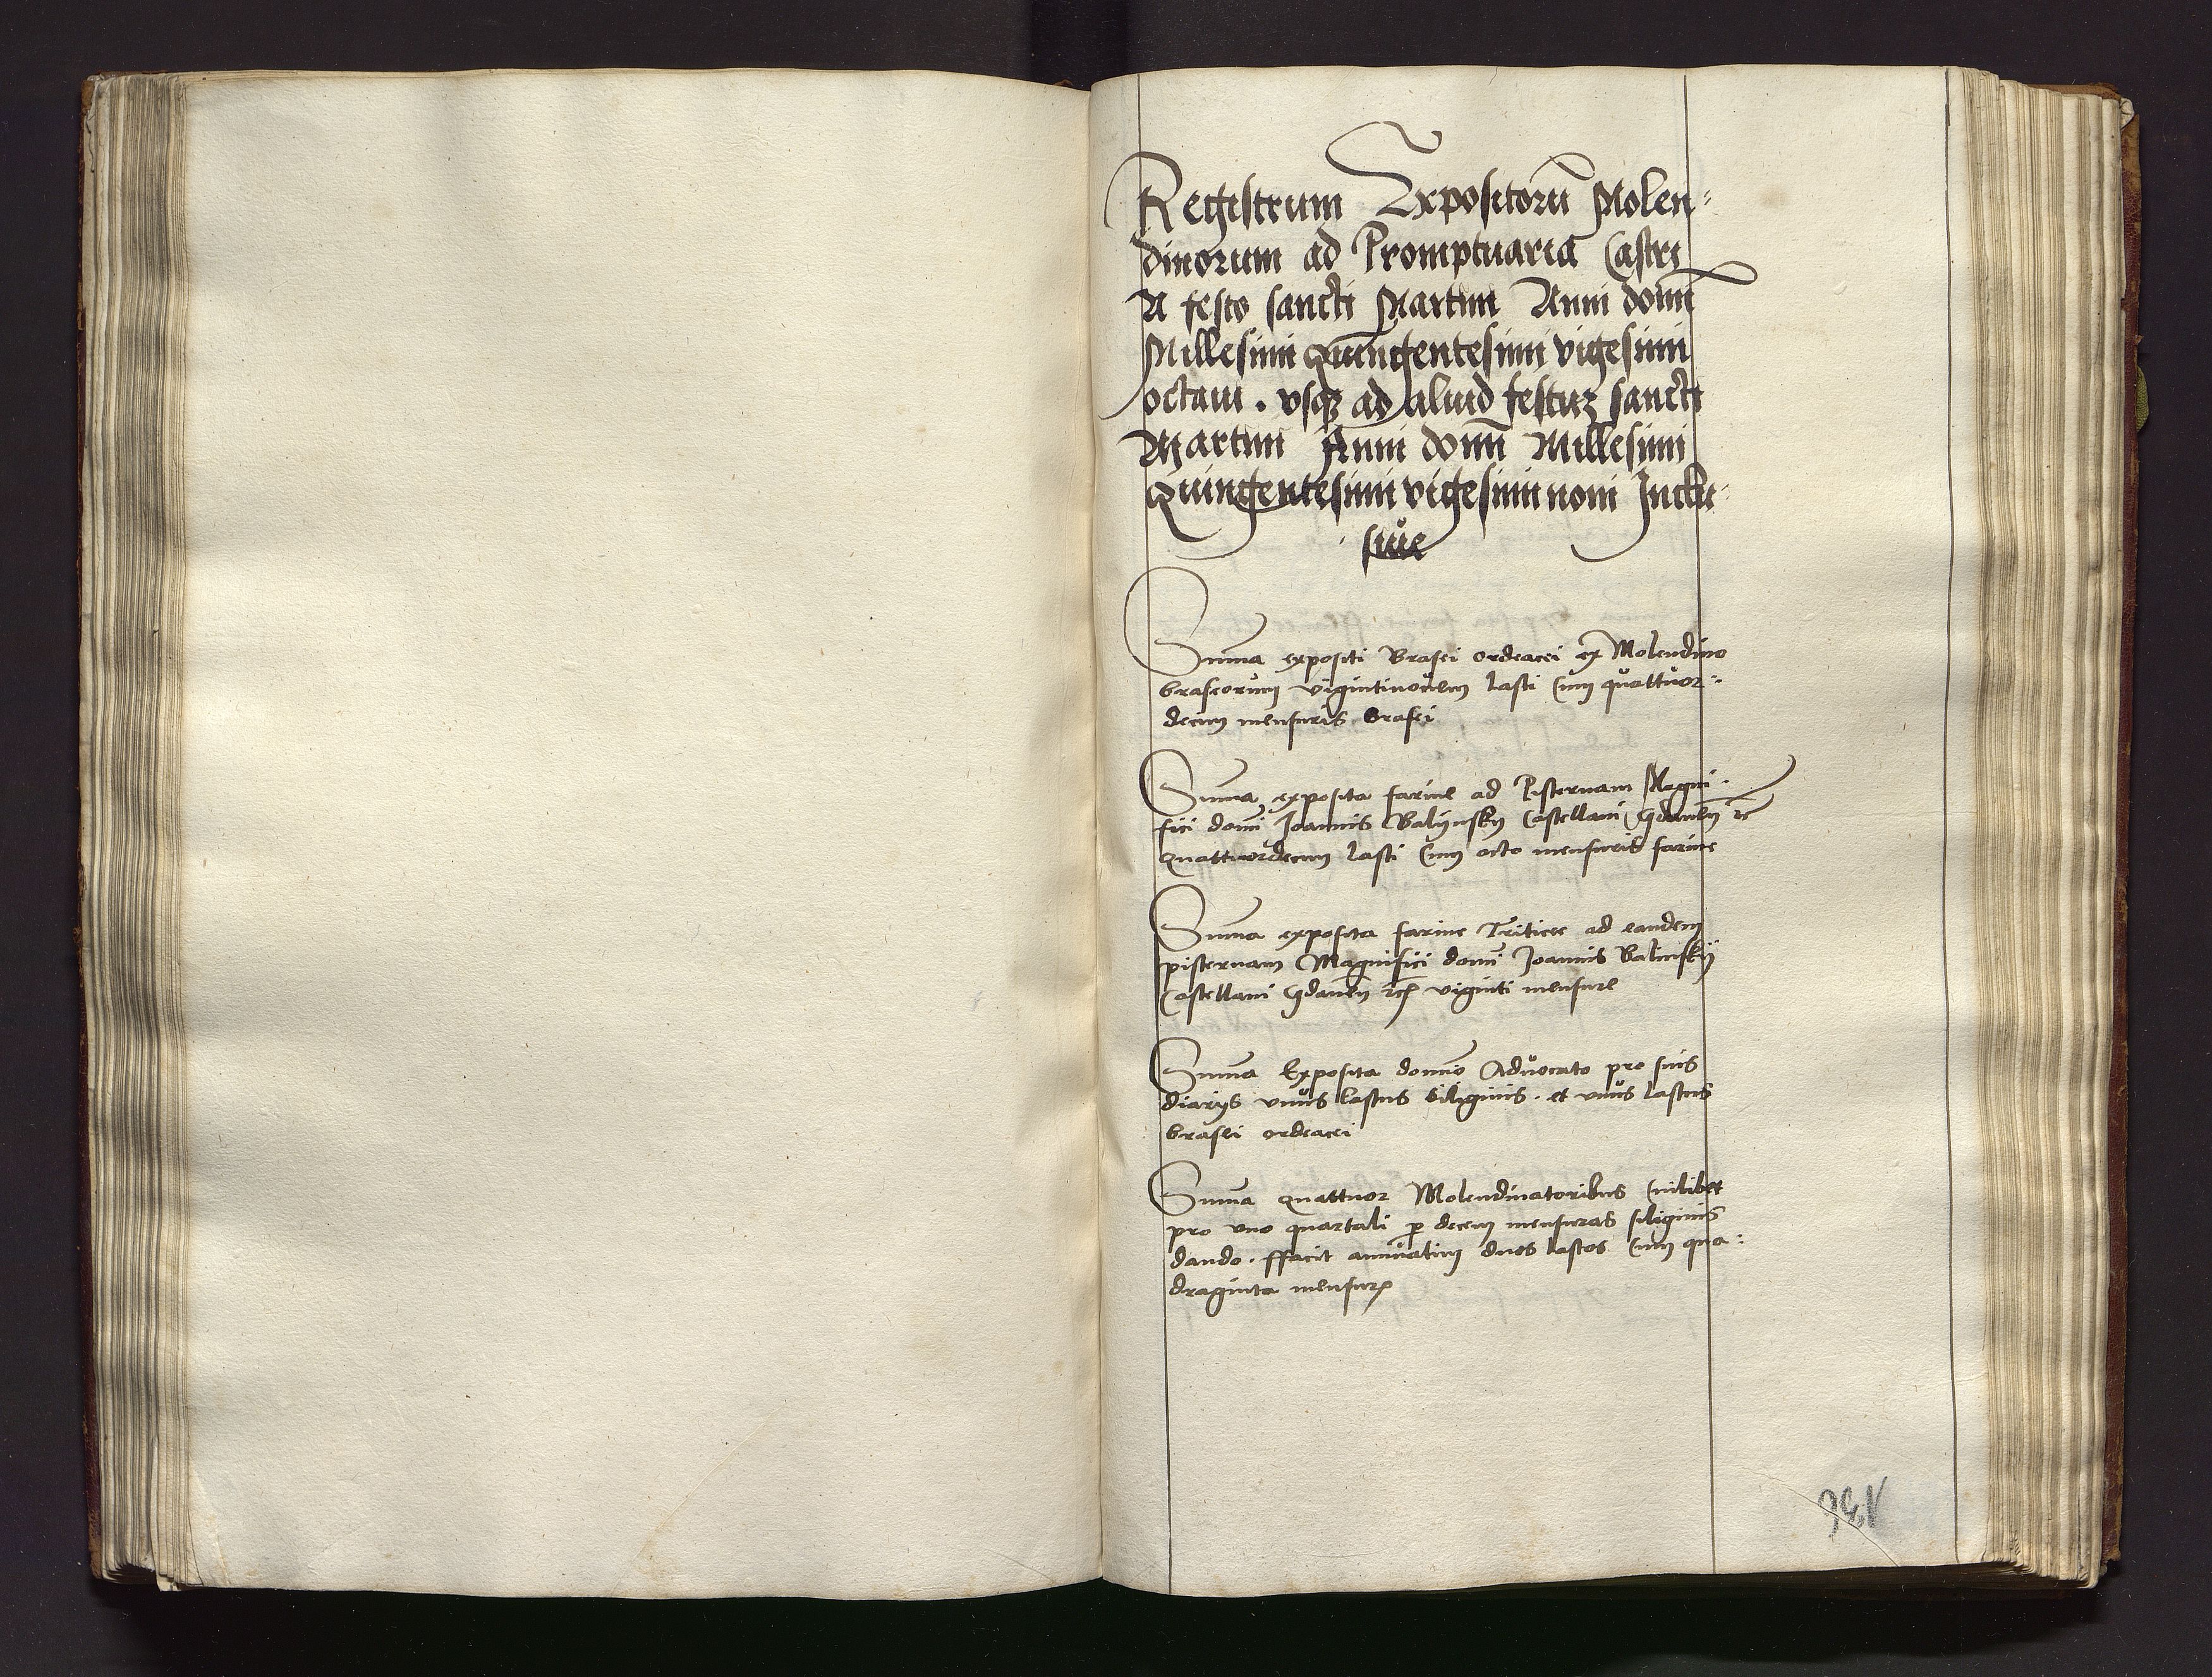 Registrum Expositorũ Molen-
dinorum ad Promptuaria Castri
A festo sancti Martini Anni domi
Millesimi quingentesimi vigesimi
octaui . vsqz ad aliud festuz sancti
Martini Anni domi Millesimi
Quingentesimi vigesimi noni Inclu-
siue
Summa expositi Brasei ordeacei ex Molendino
braseorum vigintinouem lasti cum quattuor-
decim mensuris brasei
Summa exposita farine ad Pisternam Magni-
fici domi Joannis Balijnsky Castellani Gdanen̄ rc
quattuordecim lasti cum octo mensuris farine
Summa exposita farine Triticee ad eandem
pisternam Magnifici domi Joannis Balinskij
Castellani Gdanen̄ rc viginti mensure
Summa Exposita domino Aduocato pro suis
diarijs vnus lastus siliginis . et vnus lastus
brasei ordeacei
Summa quattuor Molendinatoribus Cuilibet
pro vno quartali p decem mensuras siliginis
dando . ffacit annuatim duos lastos cum qua-
draginta mensur